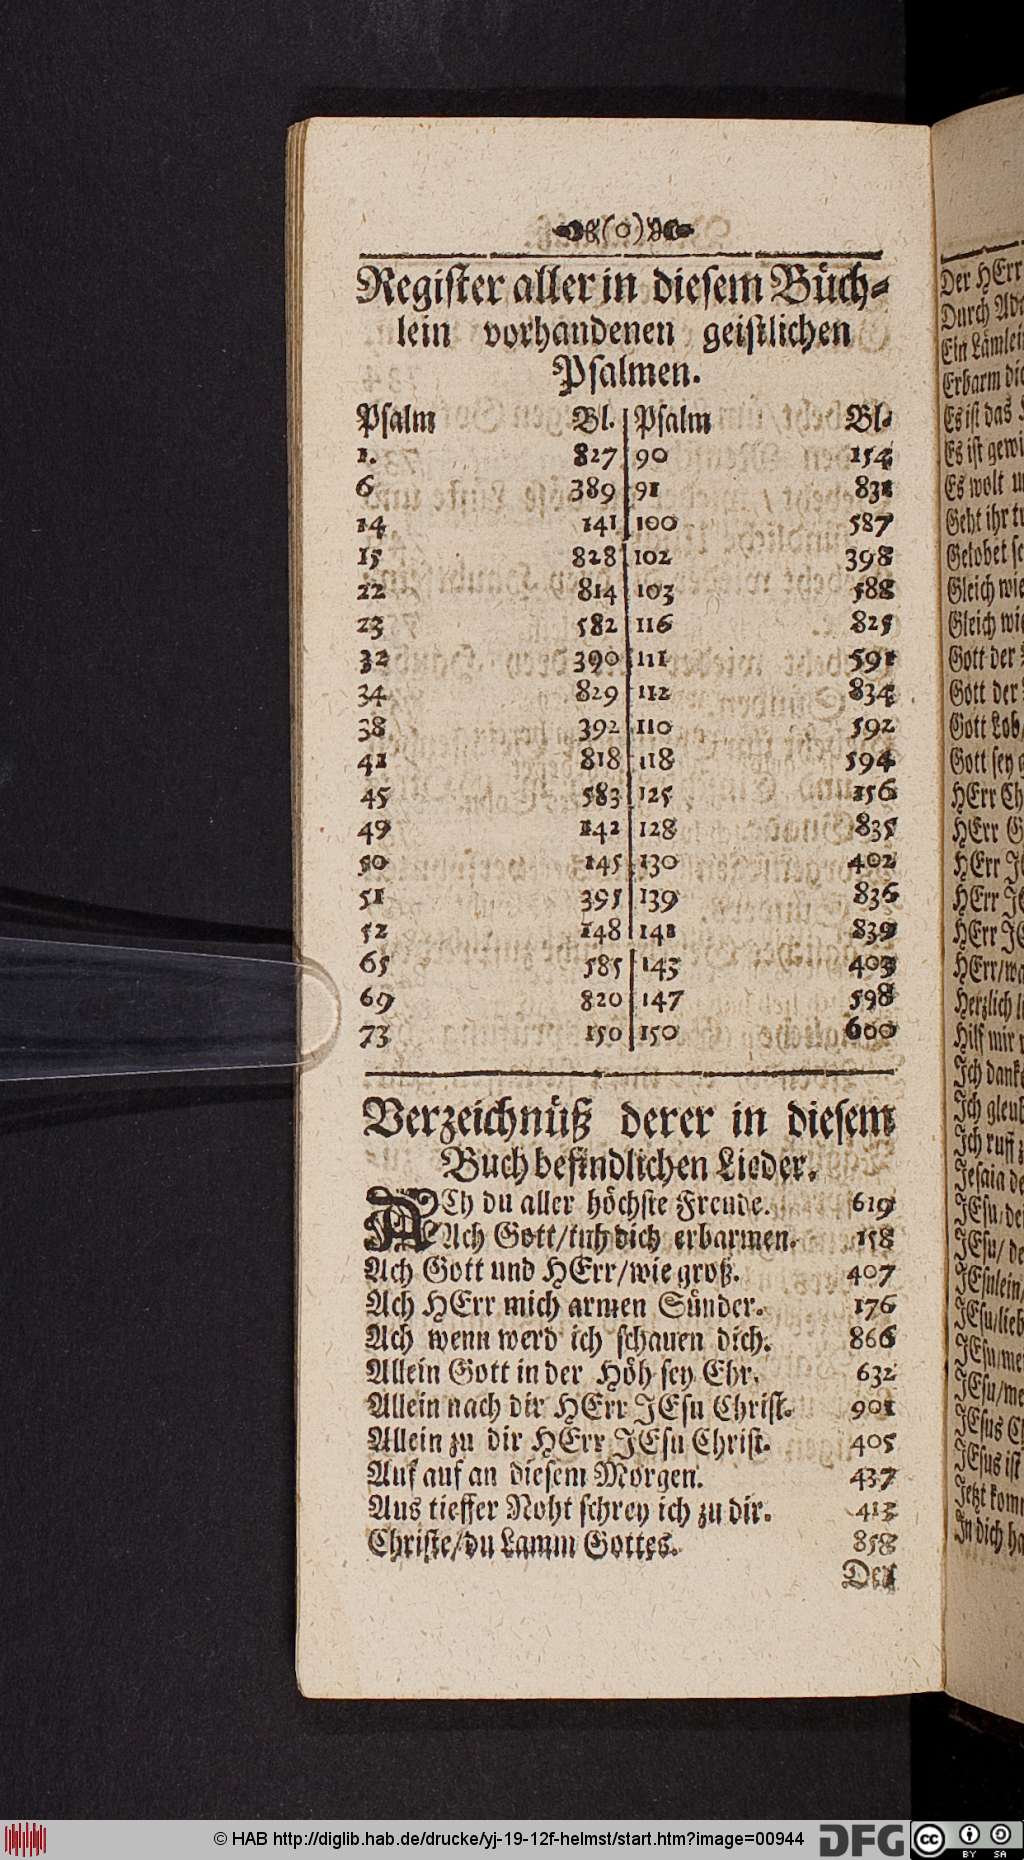 (o)
Register aller in diesem Büch-
lein vorhandenen geistlichen
Psalmen.
Psalm Bl. Psalm Bl.
1. 827 90 154
6 389 91 831
14 141 100 587
15 828 102 398
22 814 103 588
23 582 116 825
32 390 111 591
34 829 112 834
38 392 110 592
41 818 118 594
45 583 125 156
49 142 128 835
50 145 130 402
51 395 139 836
52 148 141 839
65 585 143 403
69 820 147 598
73 150 150 600
Verzeichnüß derer in diesem
Buch befindlichen Lieder.
ACh du aller höchste Freude. 619
Ach Gott/tuh dich erbarmen. 158
Ach Gott und HErr/wie groß. 407
Ach HErr mich armen Sünder. 176
Ach wenn werd ich schauen dich. 866
Allein Gott in der Höh sey Ehr. 632
Allein nach dir HErr JEsu Christ. 901
Allein zu dir HErr JEsu Christ. 405
Auf auf an diesem Morgen. 437
Aus tieffer Noht schrey ich zu dir. 413
Christe/du Lamm Gottes. 858
Der
Der HErr
Durch Ad
Ein Lämlein
Erbarm dich
Es ist das
Es ist gewi
Es wolt
Geht ihr
Gelobet
Gleich wie
Gleich wie
Gott der
Gott der
Gott Lob
Gott sey
HErr Ch
HErr G
HErr JE
HErr JE
HErr JE
HErr/wa
Herzlich
Hilf mir
Ich dank
Ich gleub
Ich ruff
Jesaia de
JEsu/dei
JEsu/de
JEsulein
JEsu/lieb
JEsu/mei
JEsu/me
JEsus Ch
JEsus ist
Jetzt kom
In dich ha
© HAB http://diglib.hab.de/drucke/yj-19-12f-helmst/start.htm?image=00944
DFG
cc BY SA